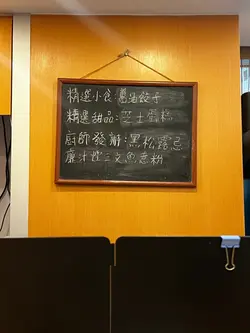 精選小食:蔥油餃子
精選甜品:芝士蛋糕
廚師發辦:黑松露忌
廉汁煙三文魚意粉